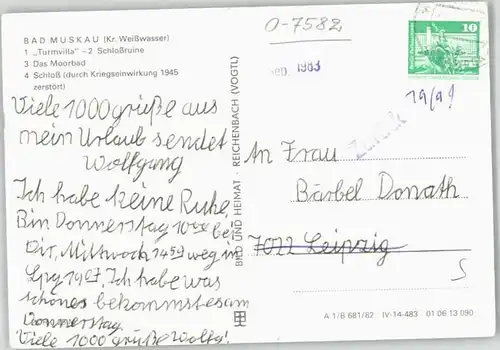 BAD MUSKAU (Kr. Weißwasser)
1 „Turmvilla" – 2 Schloßruine
3 Das Moorbad
4 Schloß (durch Kriegseinwirkung 1945
zerstört)
O-7582
1983
10
19/9!
Zurück
Viele 1000 grüße aus
mein Urlaub sendet
Wolfgang
Ich habe keine Ruhe,
Bin Donnerstag 10 bei
Dir, Mittwoch 1459 weg in
Lpg 1907, Ich habe was
schönes bekommst es am
Donnerstag
Viele 1000 grüße Wolfg!
BILD UND HEIMAT · REICHENBACH (VOGTL)
An Frau
Bärbel Donath
7022 Leipzig
A 1/B 681/82 IV-14-483 01 06 13 090